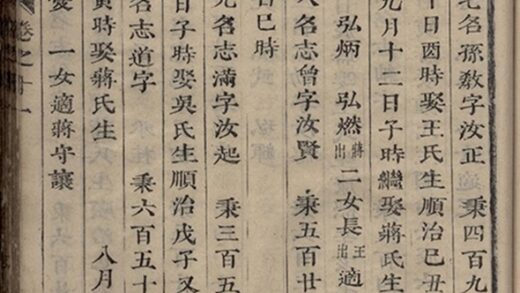 名孫敎字汝正 秉四百九
十日酉時娶王氏生順治已丑
九月十二日子時繼娶蔣氏生
弘炳 弘燃蔣出二女長王出適
名志曾字汝賢 秉五百廿
日巳時
名志滿字汝起 秉三百五
日子時娶吳氏生順治戊子又
名志道字 秉六百五十
寅時娶蔣氏生 八月
一女適蔣守讓
卷之十一